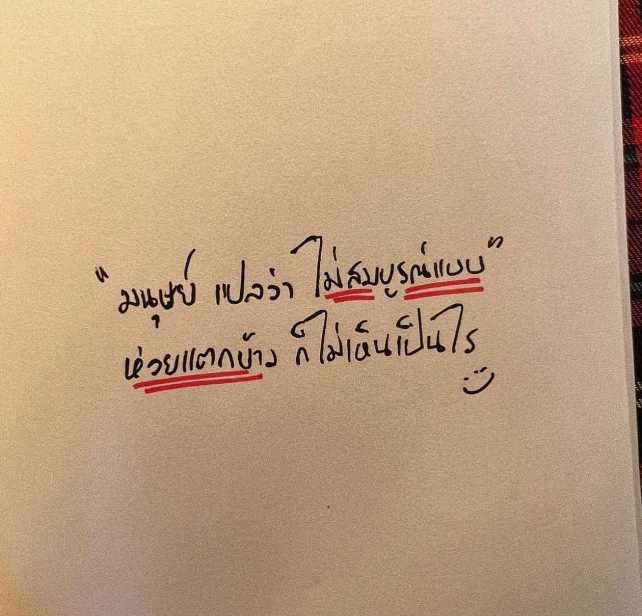 "มนุษย์ แปลว่า ไม่สมบูรณ์แบบ"
ห่วยแตกบ้าง ก็ไม่เห็นเป็นไร